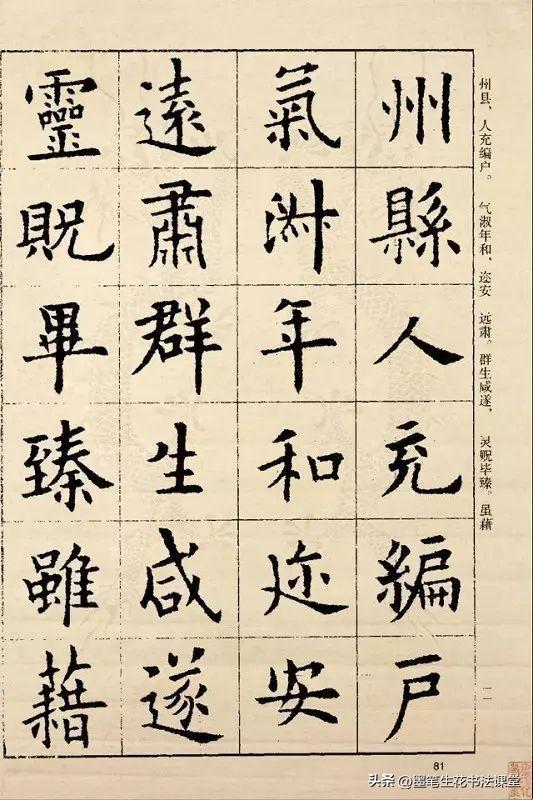 州县，人充编户。 气淑年和，迩安 远肃。群生咸遂， 灵贶毕臻。虽藉
州縣人充編戶
氣淑年和迩安
遠肅群生咸遂
靈貺畢臻雖藉
81
头条 @墨笔生花书法课堂